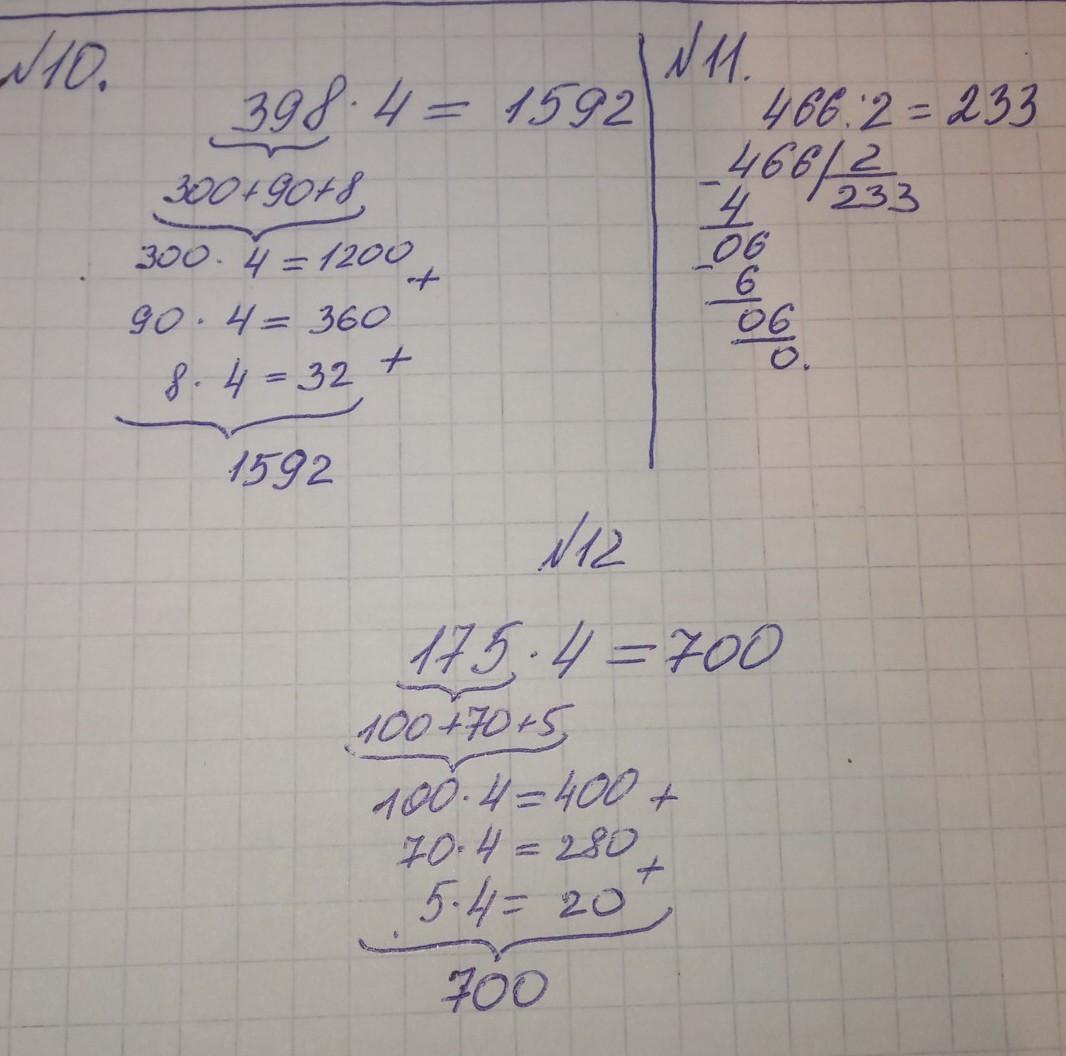 №10.
398 · 4 = 1592
300+90+8
300 · 4 = 1200
+
90 · 4 = 360
+
8 · 4 = 32
1592
№11.
466:2 = 233
-466/2
4 233
-06
6
06
0.
№12
175 · 4 = 700
100+70+5
100 · 4 = 400 +
70 · 4 = 280
+
5 · 4 = 20
700